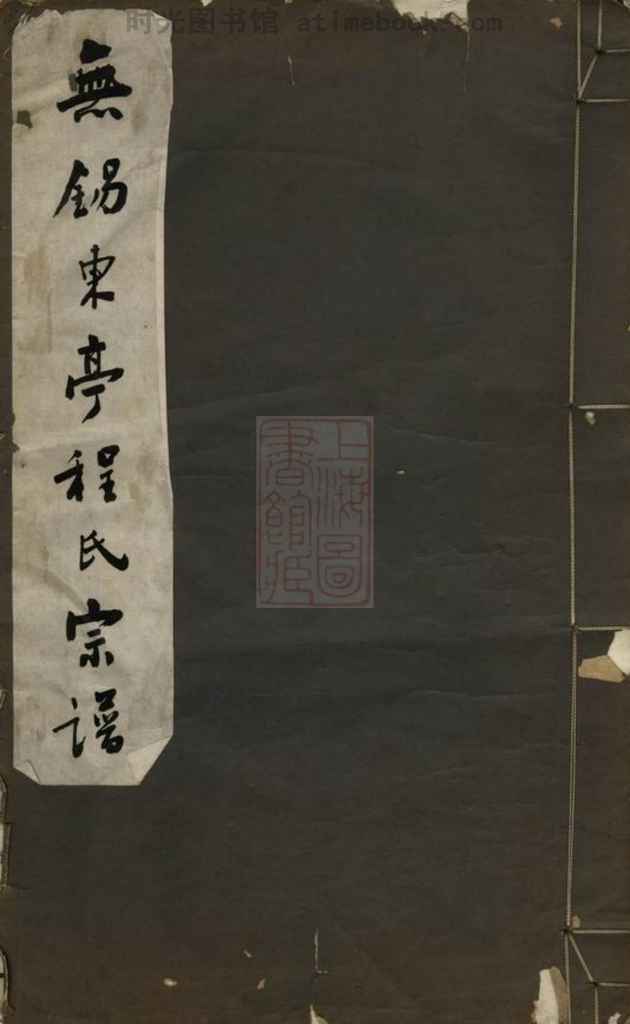 时光图书馆 atimebook.com
無錫東亭程氏宗譜
上海圖
書館藏